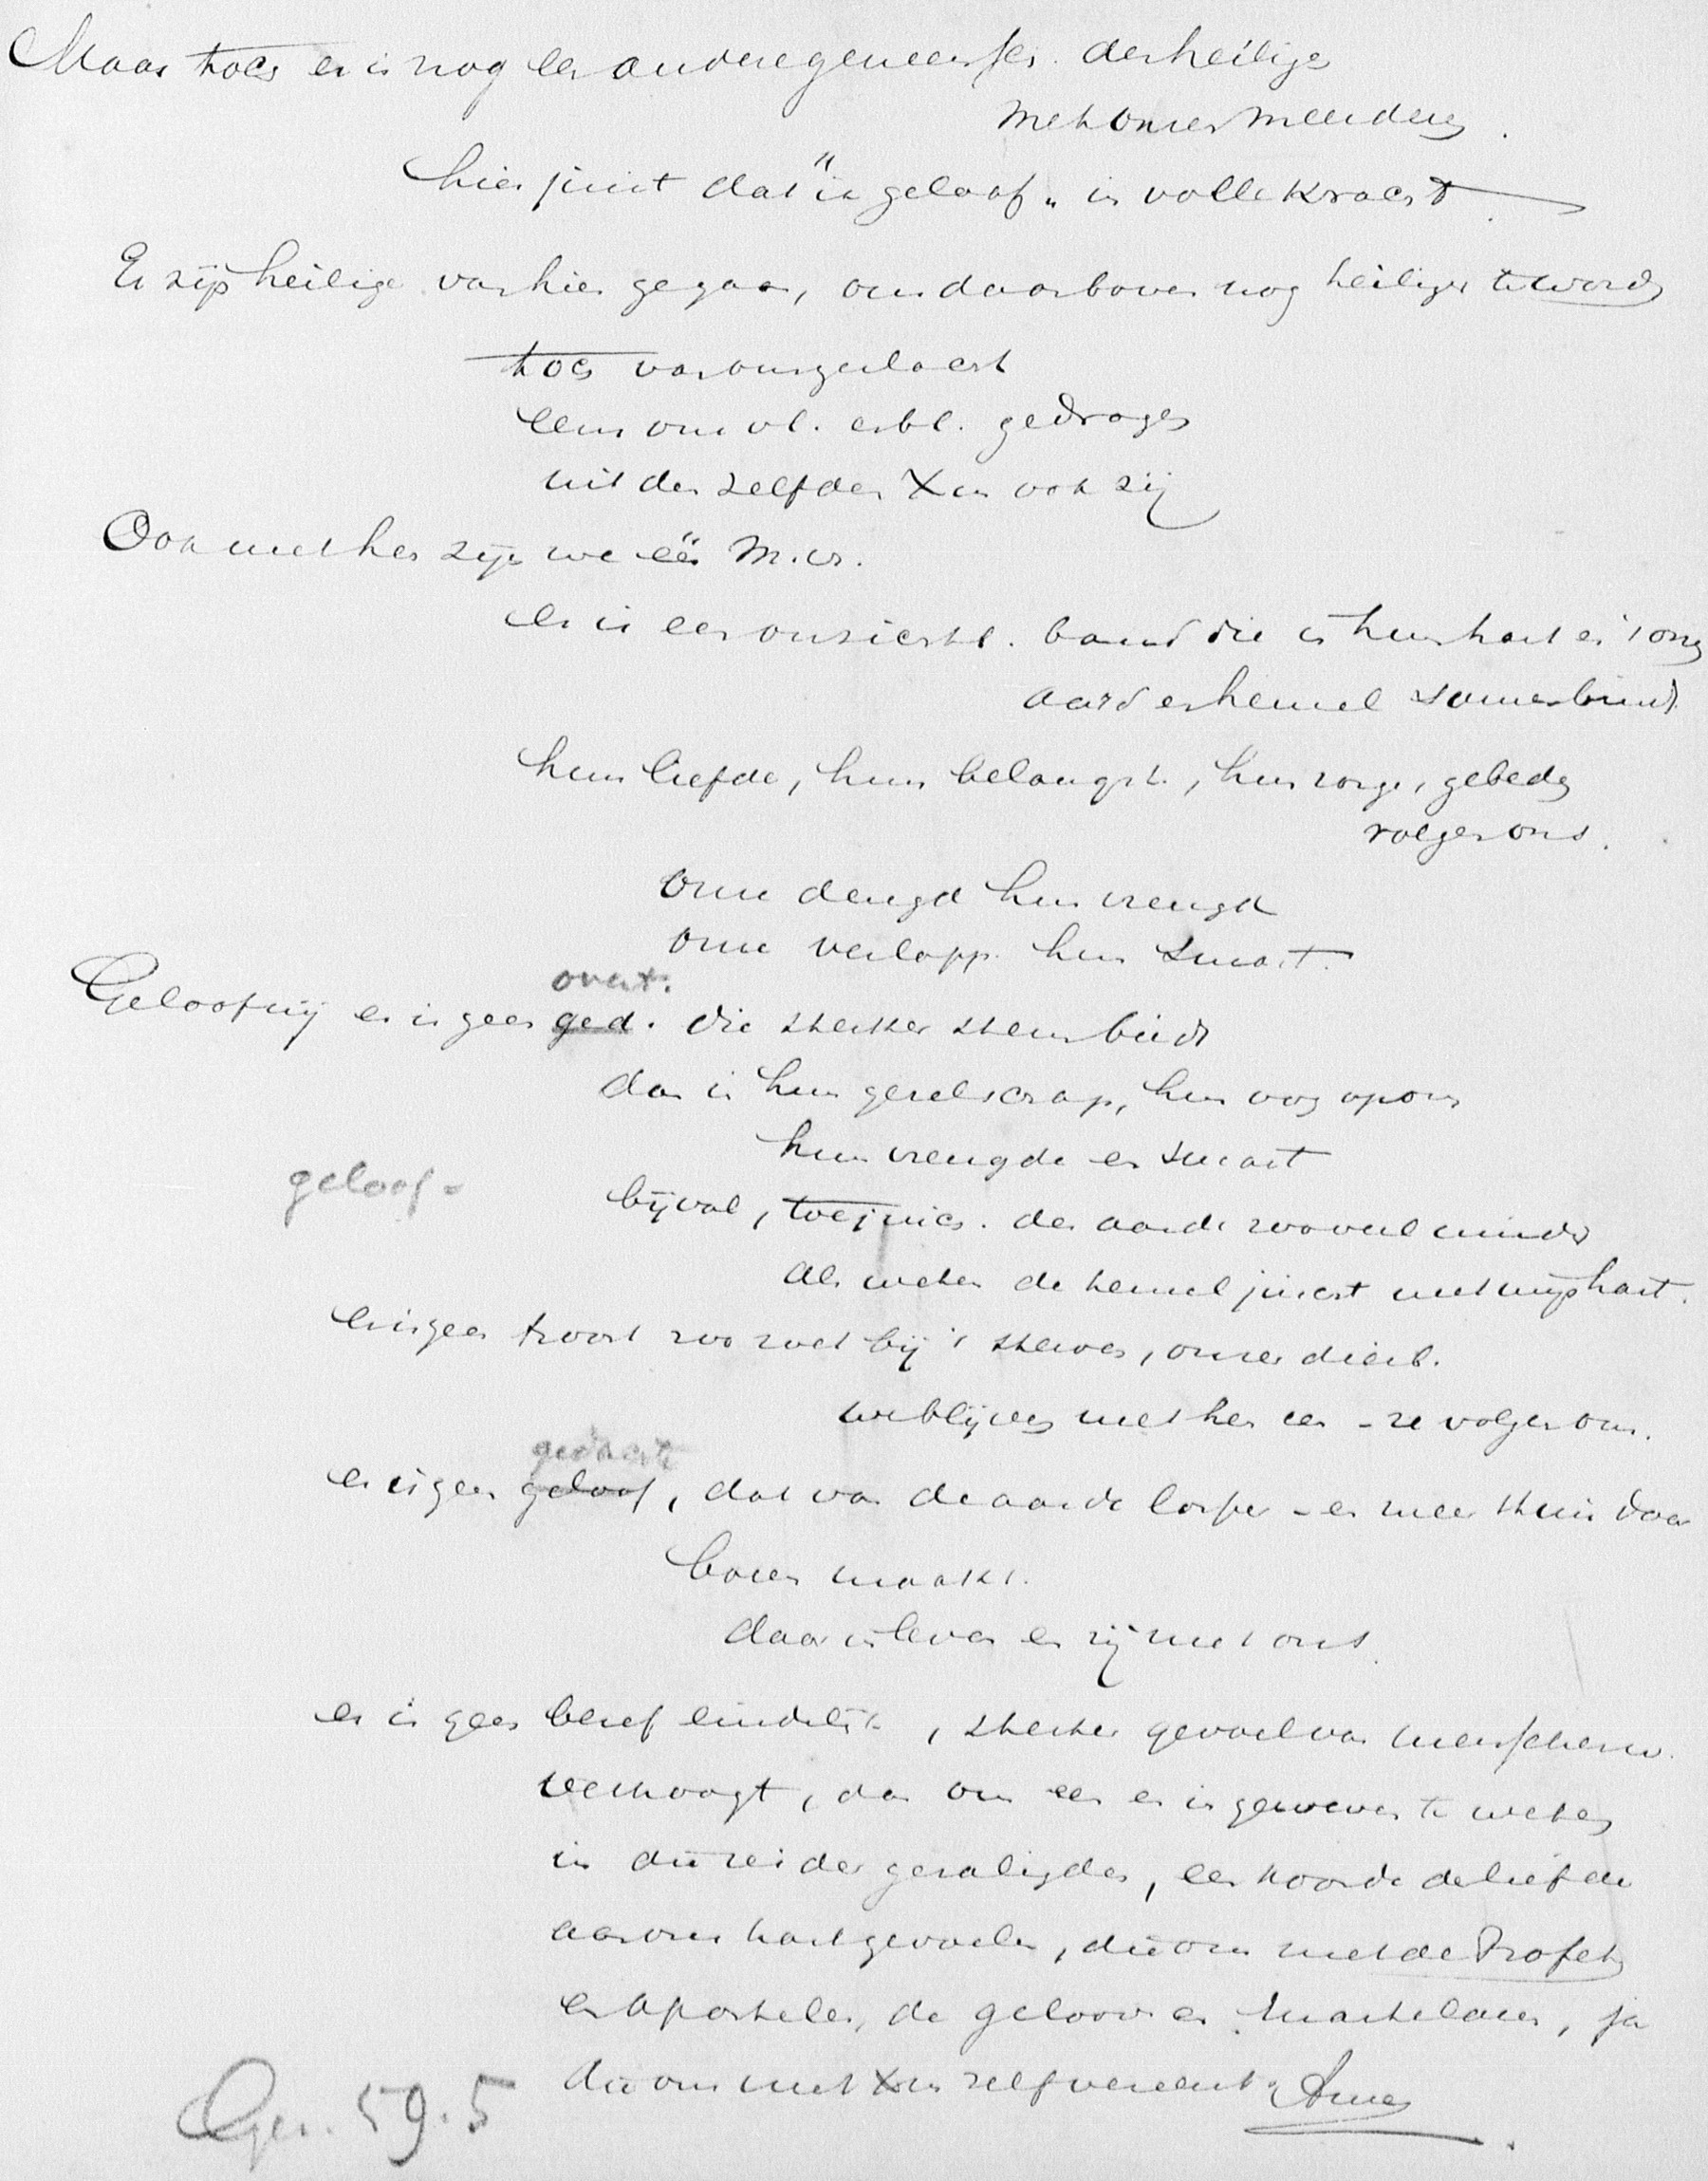 Maar toch er is nog een andere gemeensch. der heilige
met onzen meerdere.
hier juist dat "ik geloof" in volle kracht.
Er zijn heilige van hier gegaan, om daarboven nog heiliger te worden
toch van ons geslacht
eens ons vl. en bl. gedragen
uit den zelfden X en ook zij
Ook met hen zijn we één M. Vr.
er is een onzichtb. band die in hun hart en 't onze
aard en hemel samenbindt
hun liefde, hun belangst., hun zorge, gebeden
volgen ons.
onze deugd hun vreugd
onze verlapp. hun smart.
overt.
Geloof mij er is geen ged. die sterker steun biedt
dan is hun gezelschap, hun oog op ons
hun vreugde en smart
geloof -
bijval, toejuich. der aarde zooveel minder
als weten de hemel juicht met mijn hart.
er is geen troost zoo zoet bij 't sterven, onzer dierb.
we blijven met hen een - ze volgen ons.
gedachte
er is geen geloof, dat van de aarde losser - en meer thuis daar
boven maakt.
daar is leven en zij met ons.
er is geen besef eindelijk, sterker gevoel van menschenw.
verhoogt, dan ons een en ingeweven te weten
in die rei der gezaligden, een koorde der liefde
aan ons hart gevoelen, die ons met de Profeten
en Apostelen, de geloov. en martelaren, ja
die ons met Xus zelf vereent. Amen
Gez. 59.5